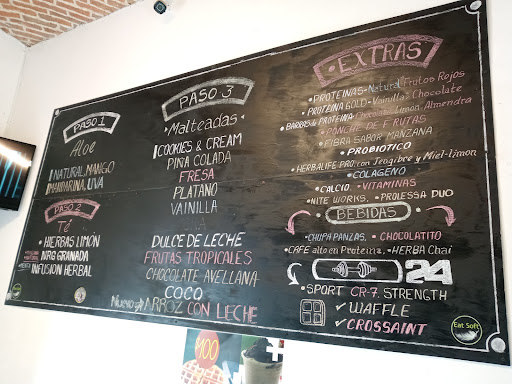 PASO 1
Aloe
NATURAL, MANGO
MANDARINA, UVA
PASO 2
Té
• HIERBAS LIMÓN
NRG GRANADA
INFUSION HERBAL
PASO 3
Malteadas
COOKIES & CREAM
PIÑA COLADA
FRESA
PLATANO
VAINILLA
DULCE DE LECHE
FRUTAS TROPICALES
CHOCOLATE AVELLANA
COCO
Nuevo → ARROZ CON LECHE
• EXTRAS •
• PROTEINAS- Natural Frutos Rojos
• PROTEINA GOLD- Vainilla Chocolate
BARRAS de PROTEINA- Chocolate, Limon, Almendra
PONCHE DE FRUTAS
• FIBRA SABOR MANZANA
• PROBIOTICO
• HERBALIFE PRO. con Jengibre y Miel-limon
COLAGENO
• CALCIO. • VITAMINAS
• NITE WORKS. • PROLESSA DUO
BEBIDAS
• CHUPA PANZAS. • CHOCOLATITO
• CAFE alto en Proteina. • HERBA Chai
24
• SPORT CR-7. STRENGTH
✓ WAFFLE
✓ CROSSAINT
Eat Soft
$100